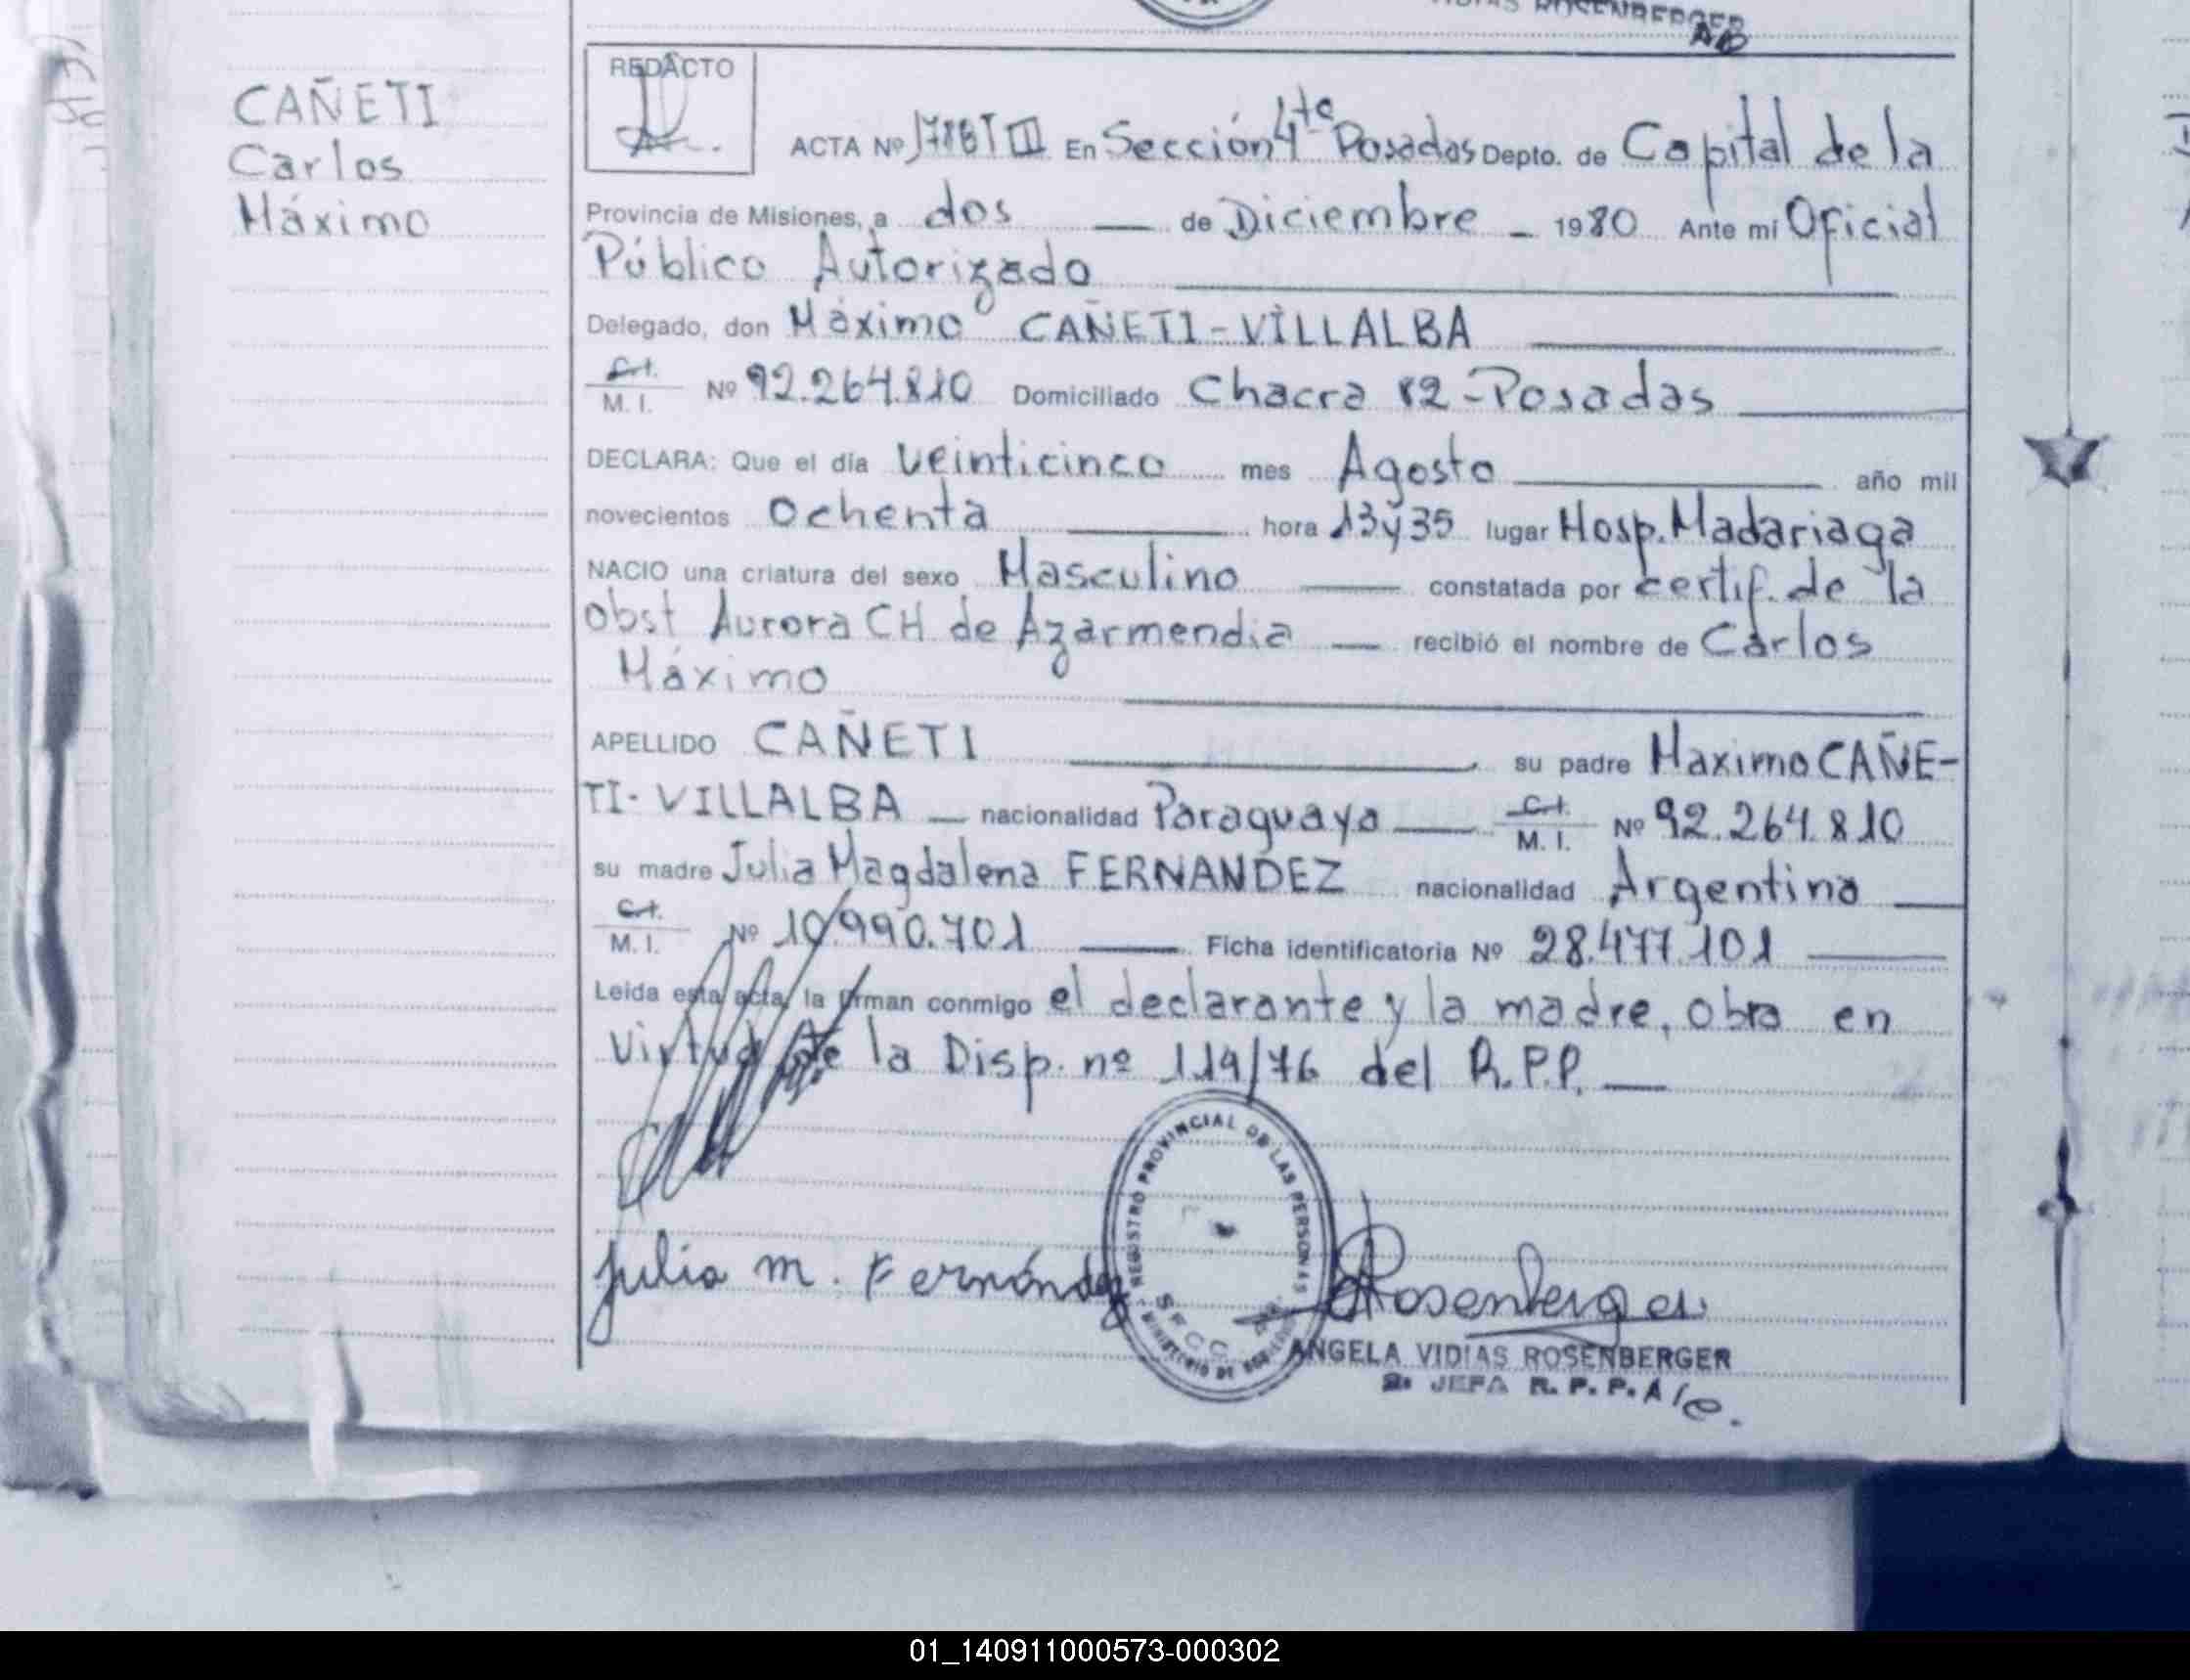 VIDIAS ROSENBERGER
CAÑETI
Carlos
Máximo
REDACTO
ACTA Nº 1786 T III En Sección 4ta Posadas Depto. de Capital de la
Provincia de Misiones, a dos — de Diciembre – 1980 Ante mi Oficial
Público Autorizado
Delegado, don Máximo CAÑETI-VILLALBA
C.I. M. I. Nº 92.264.810 Domiciliado Chacra 82-Posadas
DECLARA: Que el día veinticinco mes Agosto año mil
novecientos Ochenta hora 13y35 lugar Hosp. Madariaga
NACIO una criatura del sexo Masculino constatada por certif. de la
obst Aurora CH de Azarmendia — recibió el nombre de Carlos
Máximo
APELLIDO CAÑETI su padre Maximo CAÑE-
TI-VILLALBA — nacionalidad Paraguaya C.I. M. I. Nº 92.264.810
su madre Julia Magdalena FERNANDEZ nacionalidad Argentina
C.I. M. I. Nº 10.990.701 Ficha identificatoria Nº 28.477.101
Leida esta acta, la firman conmigo el declarante y la madre, obra en
Virtud de la Disp. nº 119/76 del R.P.P.
REGISTRO PROVINCIAL DE LAS PERSONAS
MINISTERIO DE
Julia M. Fernández
Rosenberger
ANGELA VIDIAS ROSENBERGER
2ª JEFA R. P. P. A/c.
01_140911000573-000302